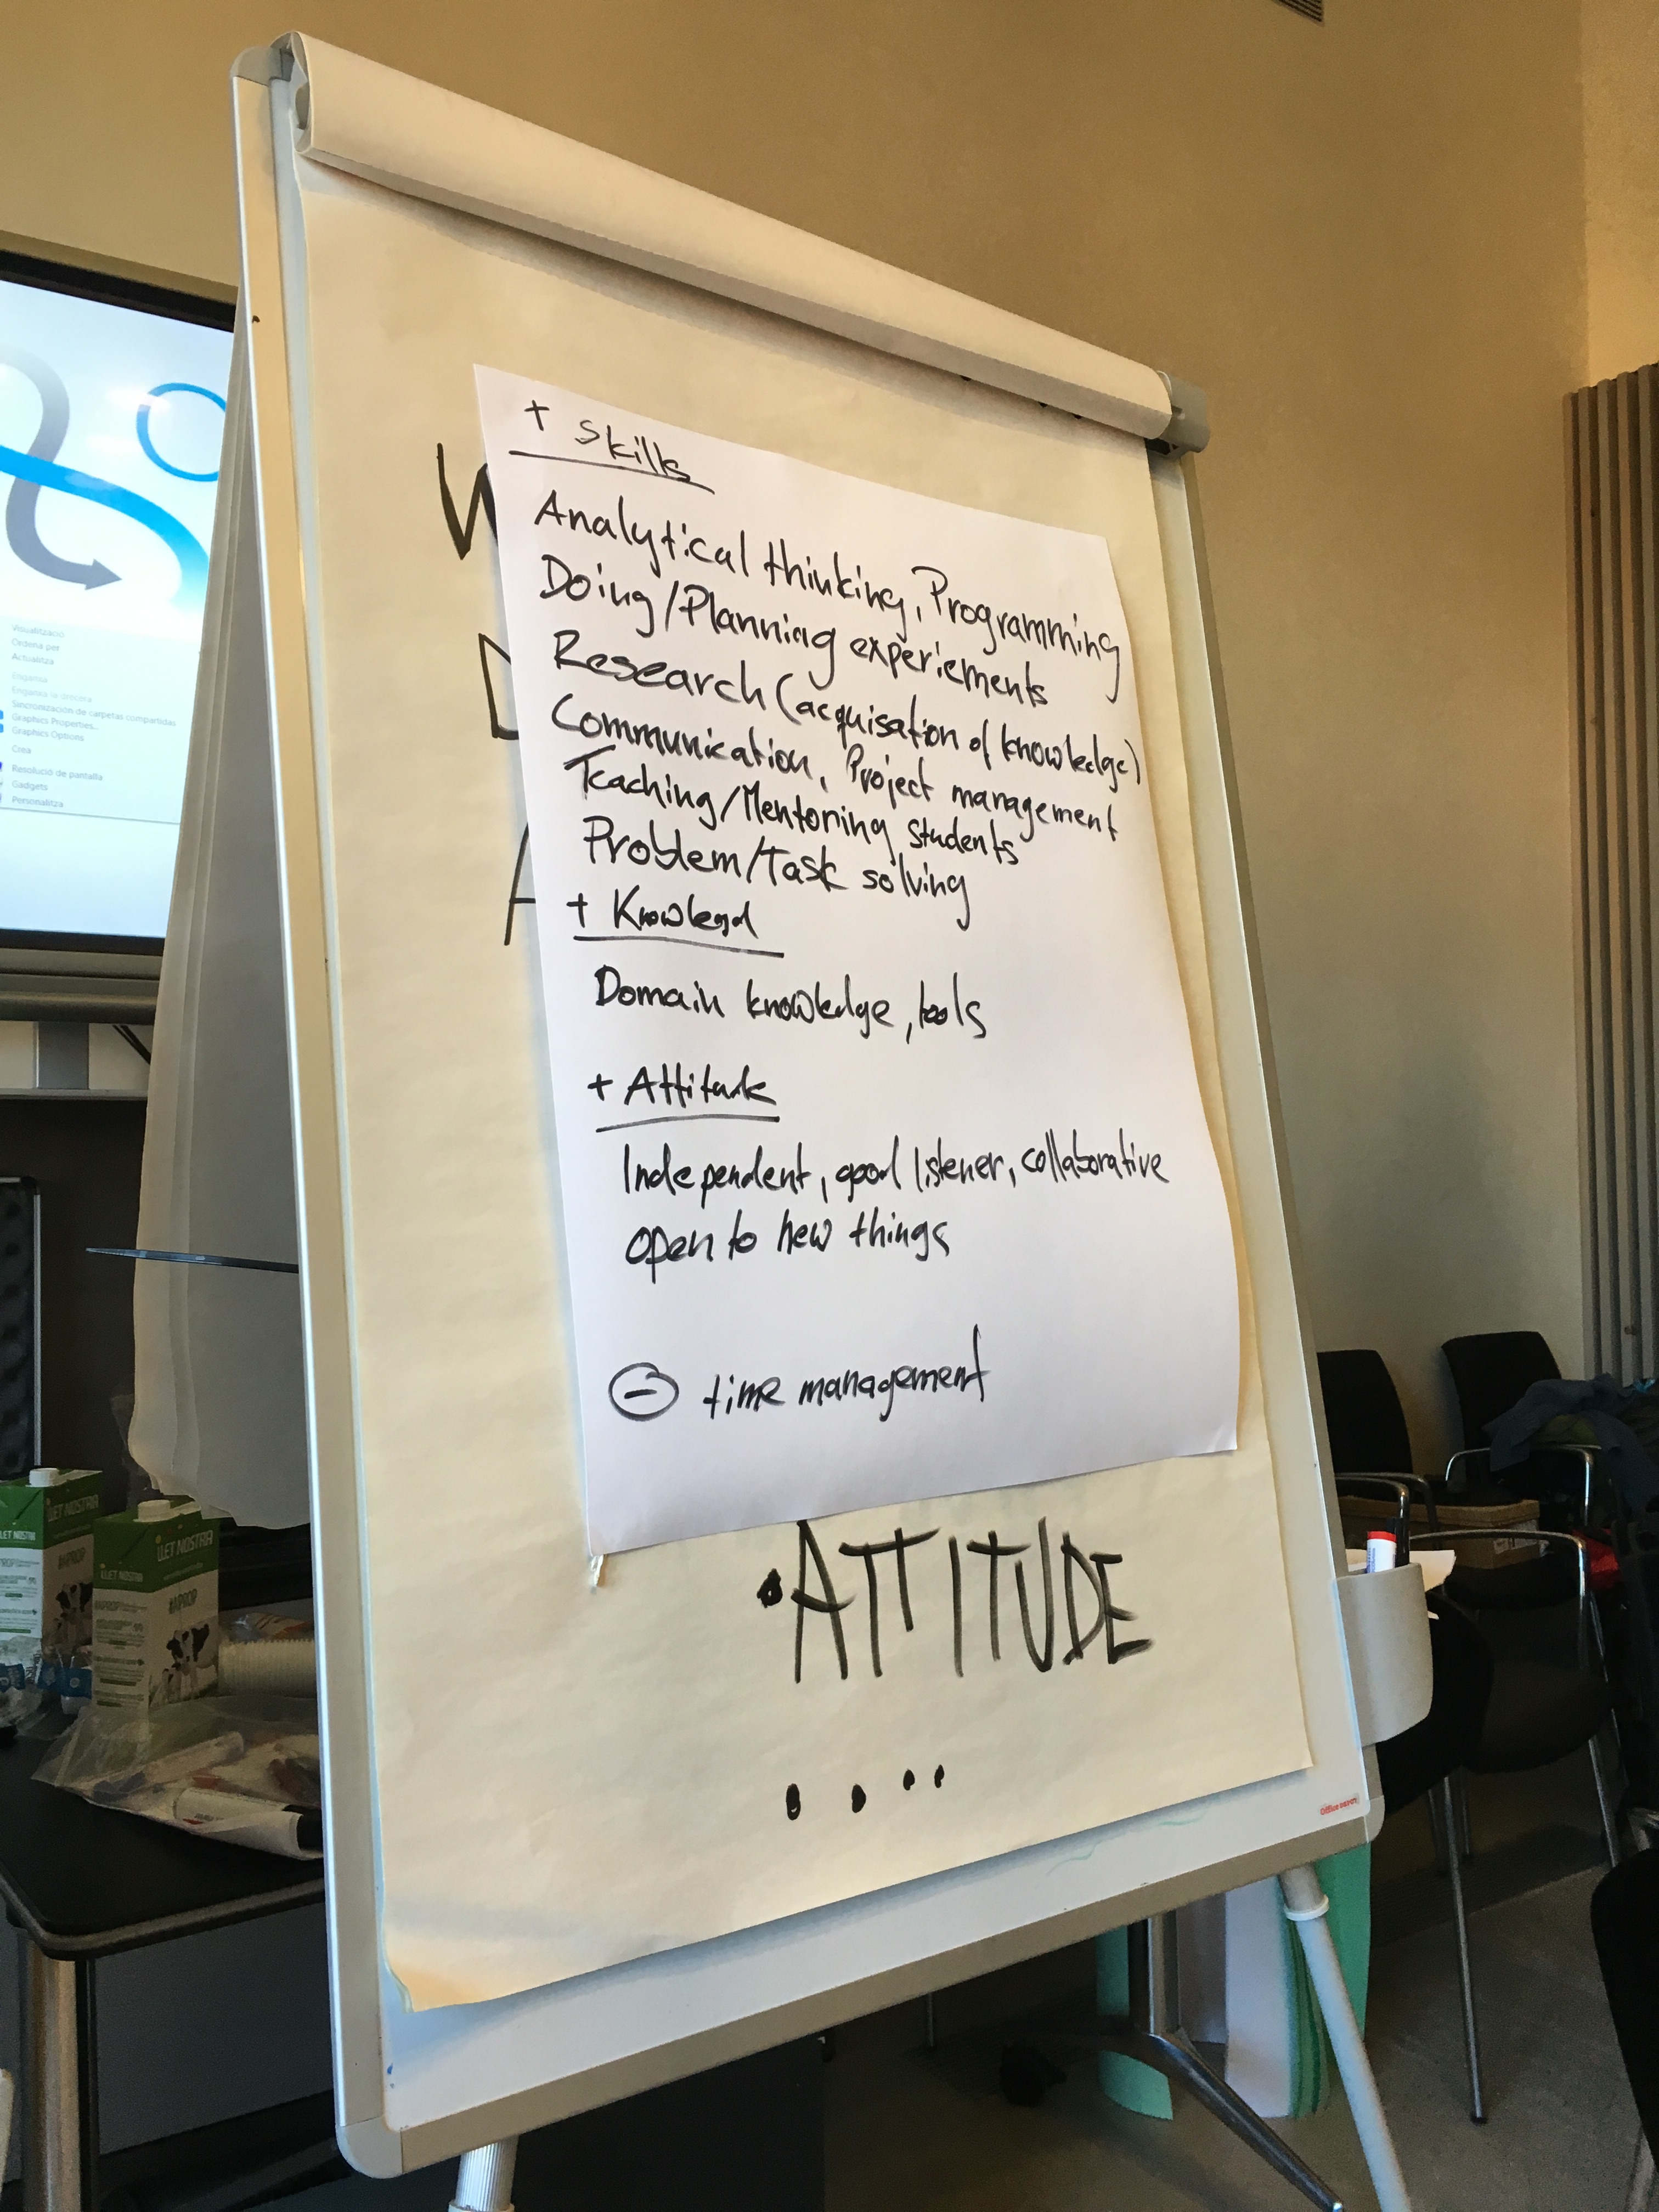 + Skills
Analytical thinking, Programming
Doing/Planning experiements
Research (acquisation of knowledge)
Communication, Project management
Teaching/Mentoring students
Problem/Task solving
+ Knowled
Domain knowledge, tools
+ Attitude
Independent, good listener, collaborative
open to new things
- time management
W
D
A
• ATTITUDE
. . . .
Visualització
Ordena per
Actualitza
Enganxa
Enganxa la drecera
Sincronización de carpetas compartidas
Graphics Properties...
Graphics Options
Crea
Resolució de pantalla
Gadgets
Personalitza
LLET NOSTRA
#APROP
LLET NOSTRA
LLET NOSTRA
#APROP
Office DEPOT